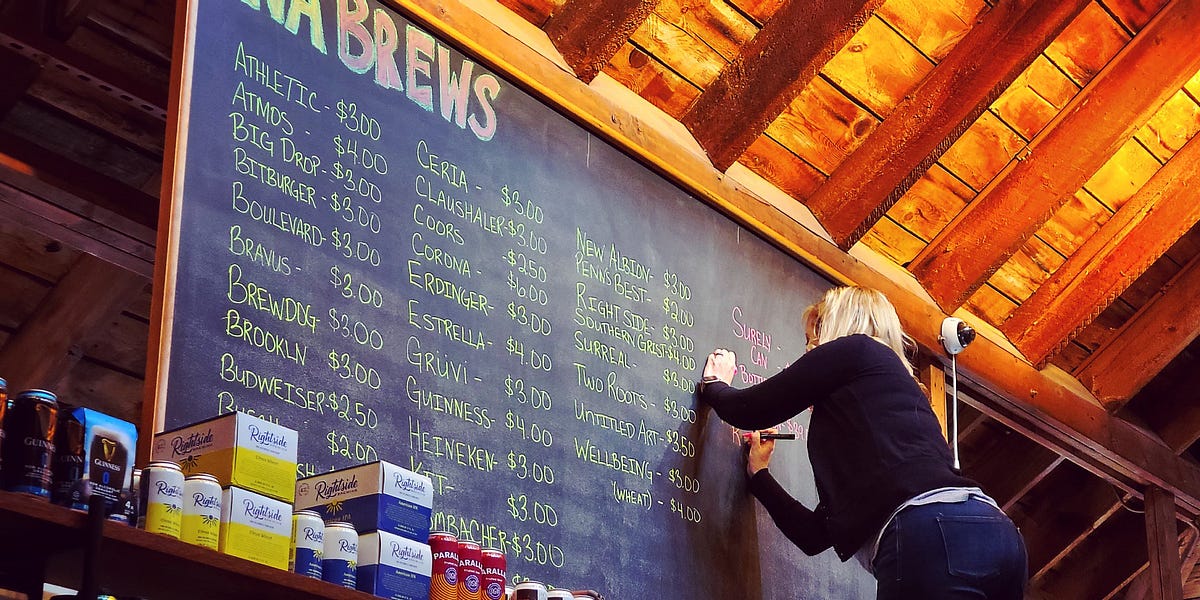 NA BREWS
ATHLETIC - $3.00
ATMOS - $4.00
BIG DROP - $3.00
BITBURGER - $3.00
BOULEVARD - $3.00
BRAVUS - $3.00
BREWDOG $3.00
BROOKLN $3.00
BUDWEISER - $2.50
$2.00
CERIA - $3.00
CLAUSHALER - $3.00
COORS - $2.50
CORONA - $6.00
ERDINGER - $3.00
ESTRELLA - $4.00
GRÜVI - $3.00
GUINNESS - $4.00
HEINEKEN - $3.00
KIT - $3.00
MBACHER - $3.00
NEW ALBION - $3.00
PENNS BEST - $2.00
RIGHT SIDE - $3.00
SOUTHERN GRIST - $4.00
SURREAL - $3.00
TWO ROOTS - $3.00
UNTITLED ART - $3.50
WELLBEING - $3.00
(WHEAT) - $4.00
SURELY -
CAN
GUINNESS
GUINNESS
0
Rightside
Rightside
Rightside
Rightside
Rightside
Rightside
Rightside
Rightside
Rightside
PARALL
PARALL
PARALL